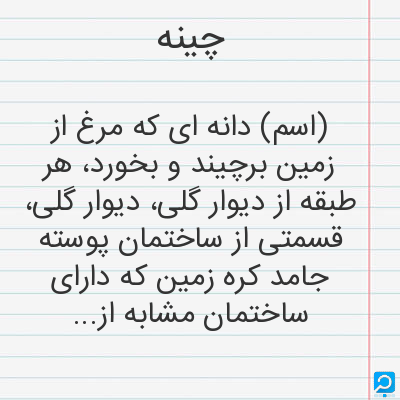 چینه
(اسم) دانه ای که مرغ از
زمین برچیند و بخورد، هر
طبقه از دیوار گلی، دیوار گلی،
قسمتی از ساختمان پوسته
جامد کره زمین که دارای
ساختمان مشابه از...